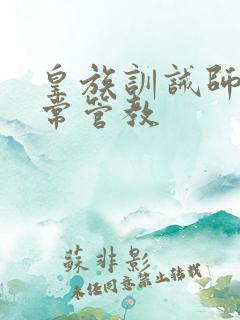 皇族訓誡師
常管教
蘇非影
未任同意禁止轉載